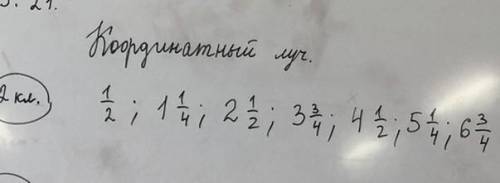 Координатный луч.
2 кл.
1/2 ; 1 1/4 ; 2 1/2 ; 3 3/4 ; 4 1/2 ; 5 1/4 ; 6 3/4